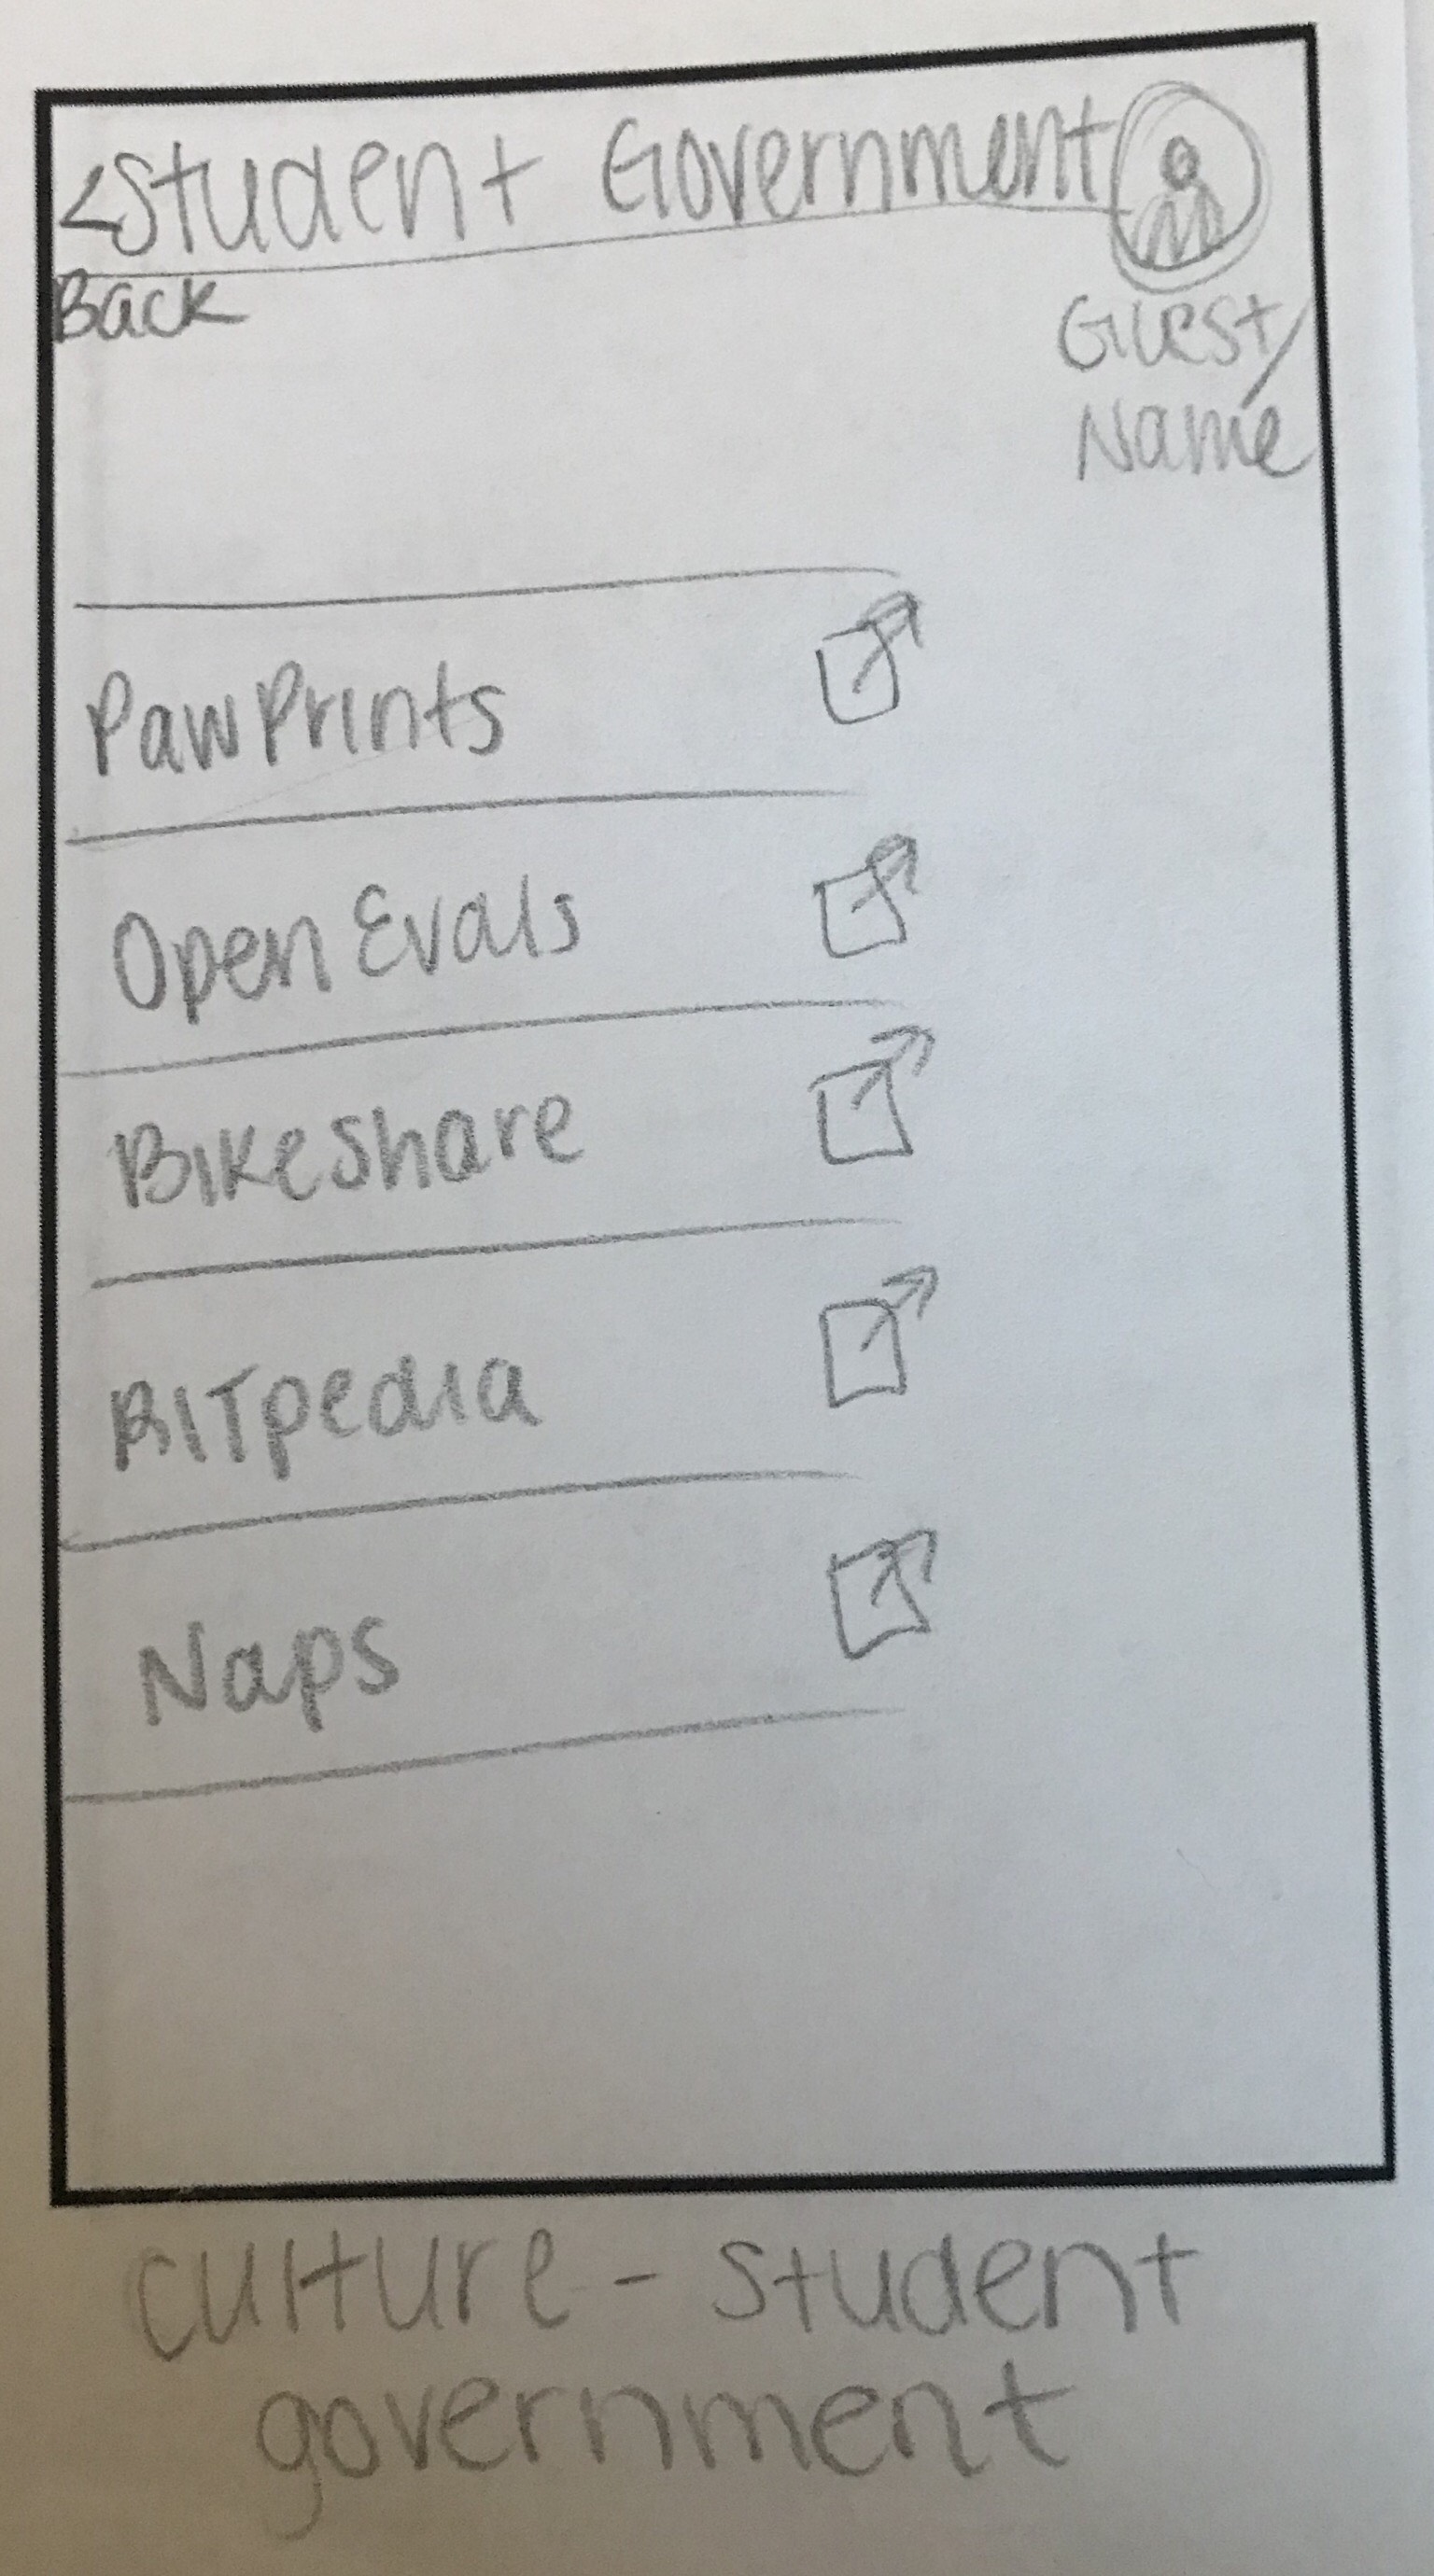 <Student Government
Back
Guest/
Name
PawPrints
Open Evals
Bikeshare
RITpedia
Naps
culture - student
government